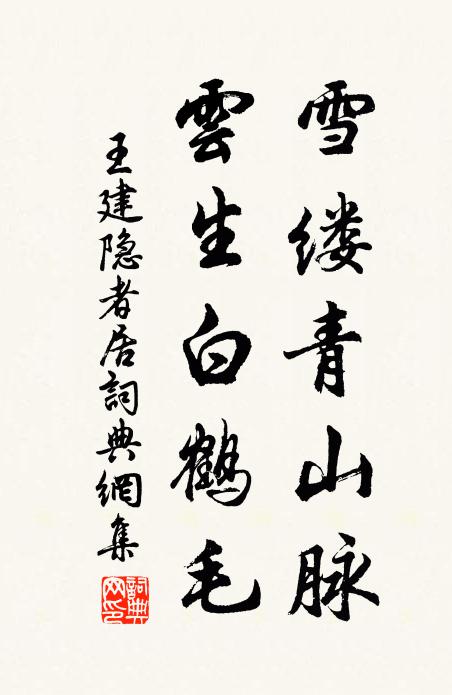 雪缕青山脉
雲生白鶴毛
王建隐者居詞典網集
詞典網印